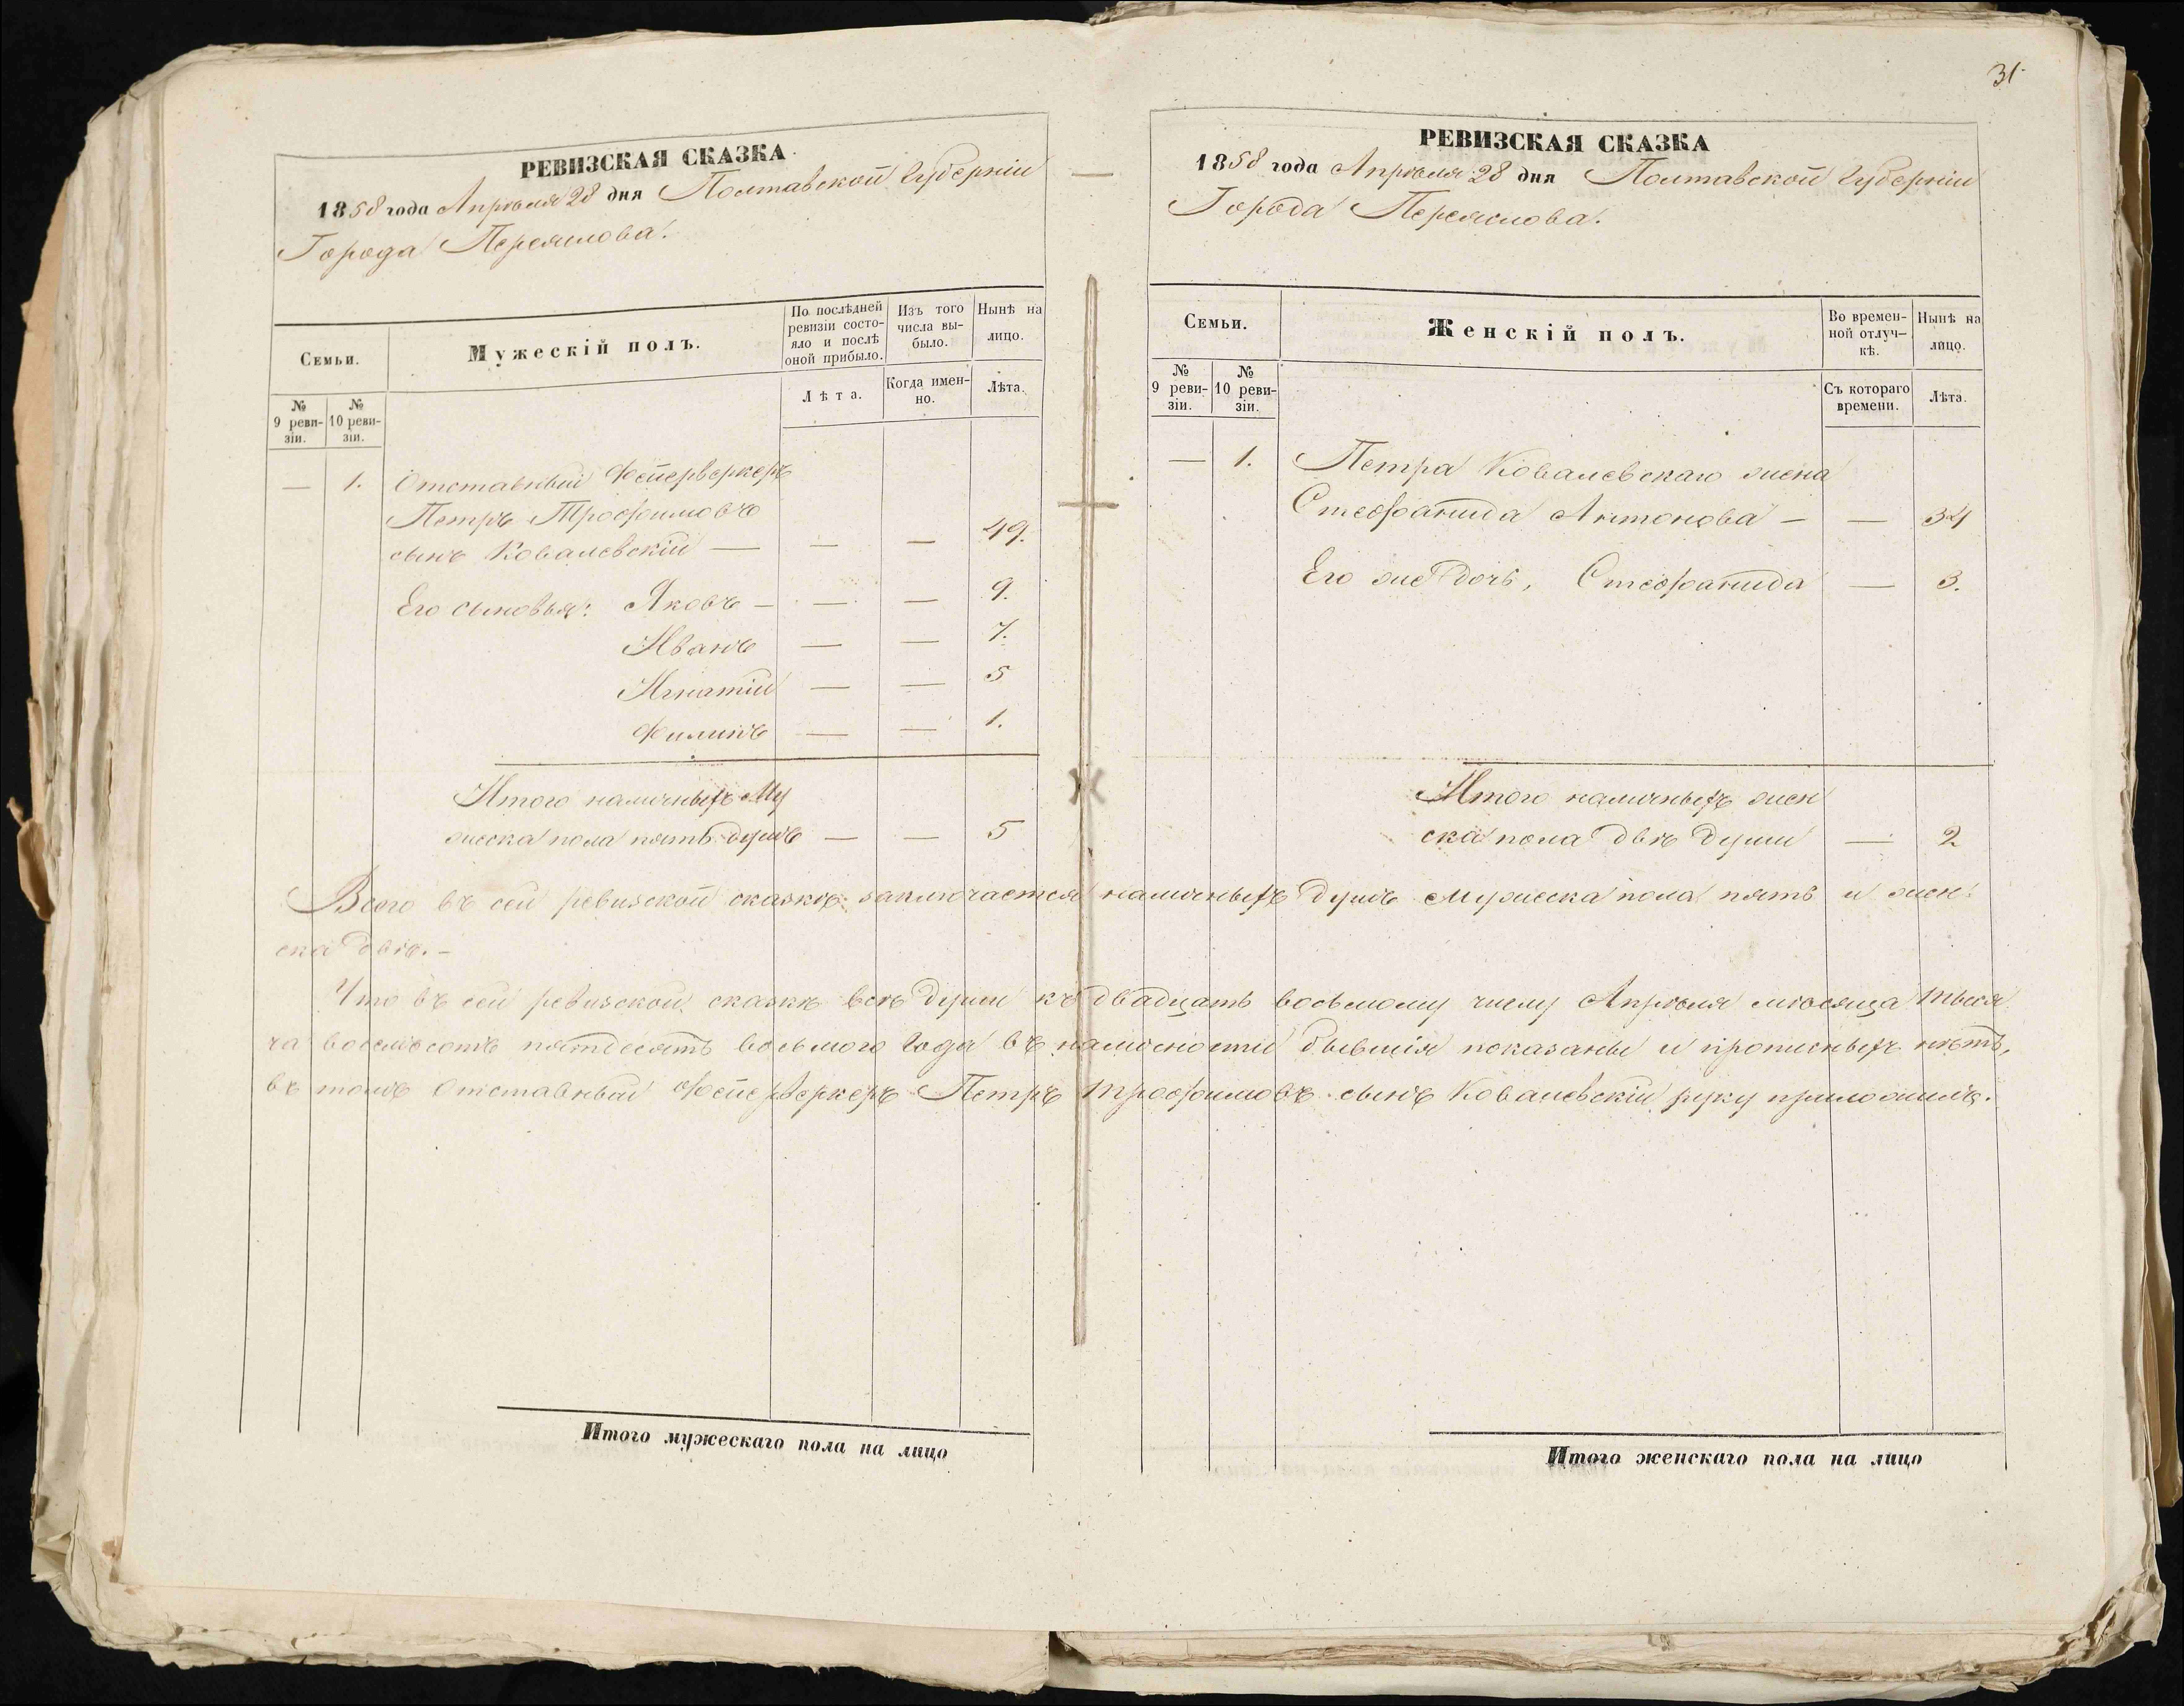 31.
РЕВИЗСКАЯ СКАЗКА
1858 года Апрѣля 28 дня Полтавской Губерніи
Города Переяслова.
Семьи.
Мужескій полъ.
По послѣдней ревизіи состо-
яло и послѣ оной прибыло.
Изъ того числа вы-
было.
Нынѣ на лицо.
№ 9 реви-
зіи.
№ 10 реви-
зіи.
Лѣта.
Когда имен-
но.
Лѣта.
— 1. Отставный Фейерверкеръ
Петръ Трофимовъ
сынъ Ковалевскій — — — 49.
Его сыновья: Яковъ — — — 9.
Иванъ — — 7.
Игнатій — — 5
Филипъ — — 1.
Итого наличныхъ Му
жеска пола пять душъ — — 5
РЕВИЗСКАЯ СКАЗКА
1858 года Апрѣля 28 дня Полтавской Губерніи
Города Переяслова.
Семьи.
Женскій полъ.
Во времен-
ной отлуч-
кѣ.
Нынѣ на лицо.
№ 9 реви-
зіи.
№ 10 реви-
зіи.
Съ котораго времени.
Лѣта.
— 1. Петра Ковалевскаго жена
Стефанида Антонова — — 34
Его же дочь, Стефанида — 3.
Итого наличныхъ жен
ска пола двѣ души — 2
Всего въ сей ревизской сказкѣ заключается наличныхъ душъ мужеска пола пять и жен:
ска двѣ. —
Что въ сей ревизской сказкѣ всѣ души къ двадцать восьмому числу Апрѣля мѣсяца тыся
ча восемьсотъ пятдесятъ восьмого года въ наличности бывшія показаны и прописныхъ нѣтъ,
въ томъ Отставный Фейерверкеръ Петръ Трофимовъ сынъ Ковалевскій руку приложилъ.
Итого мужескаго пола на лицо
Итого женскаго пола на лицо